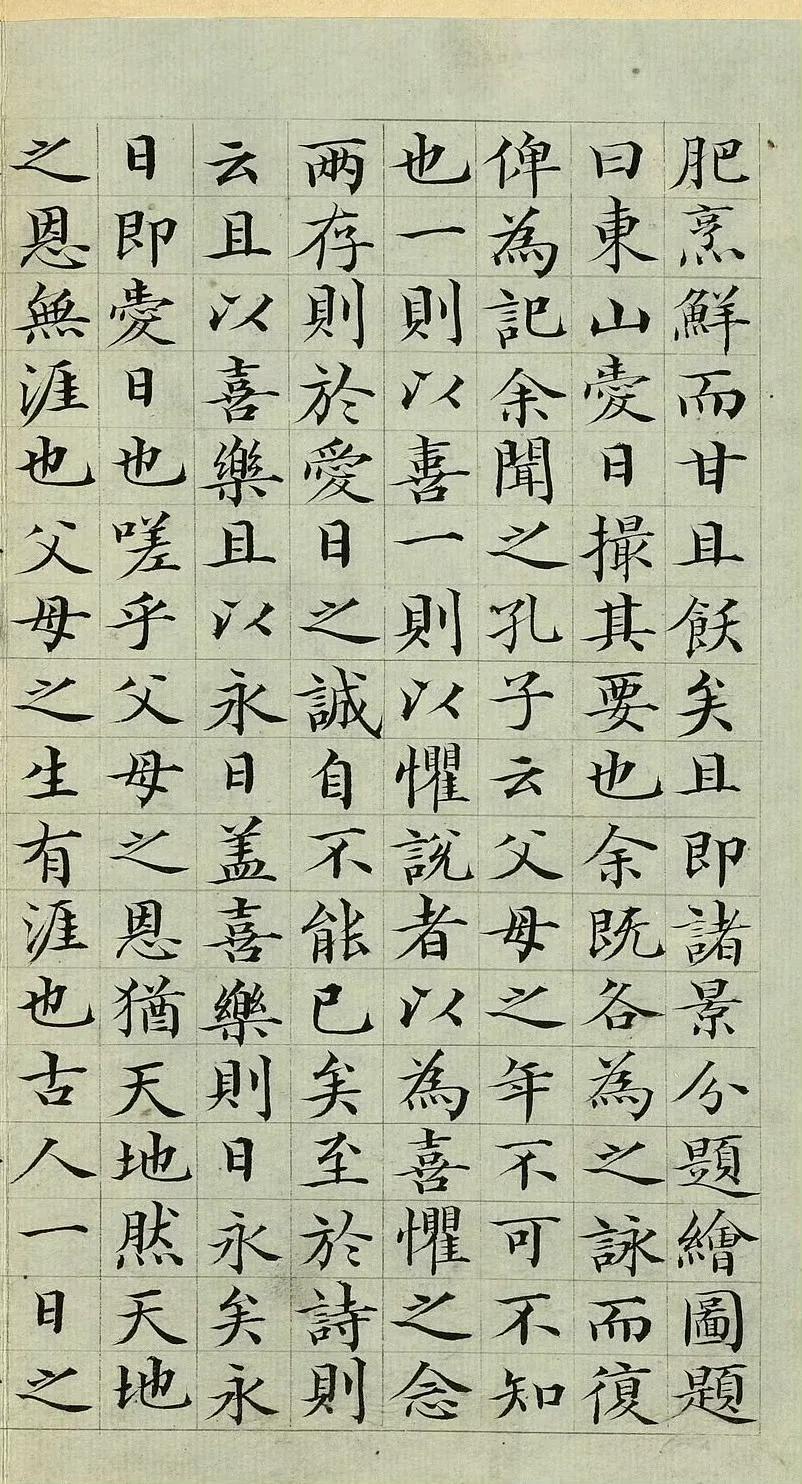 肥烹鮮而甘且飫矣且即諸景分題繪圖題
曰東山愛日撮其要也余既各為之詠而復
俾為記余聞之孔子云父母之年不可不知
也一則以喜一則以懼說者以為喜懼之念
兩存則於愛日之誠自不能已矣至於詩則
云且以喜樂且以永日葢喜樂則日永矣永
日即愛日也嗟乎父母之恩猶天地然天地
之恩無涯也父母之生有涯也古人一日之